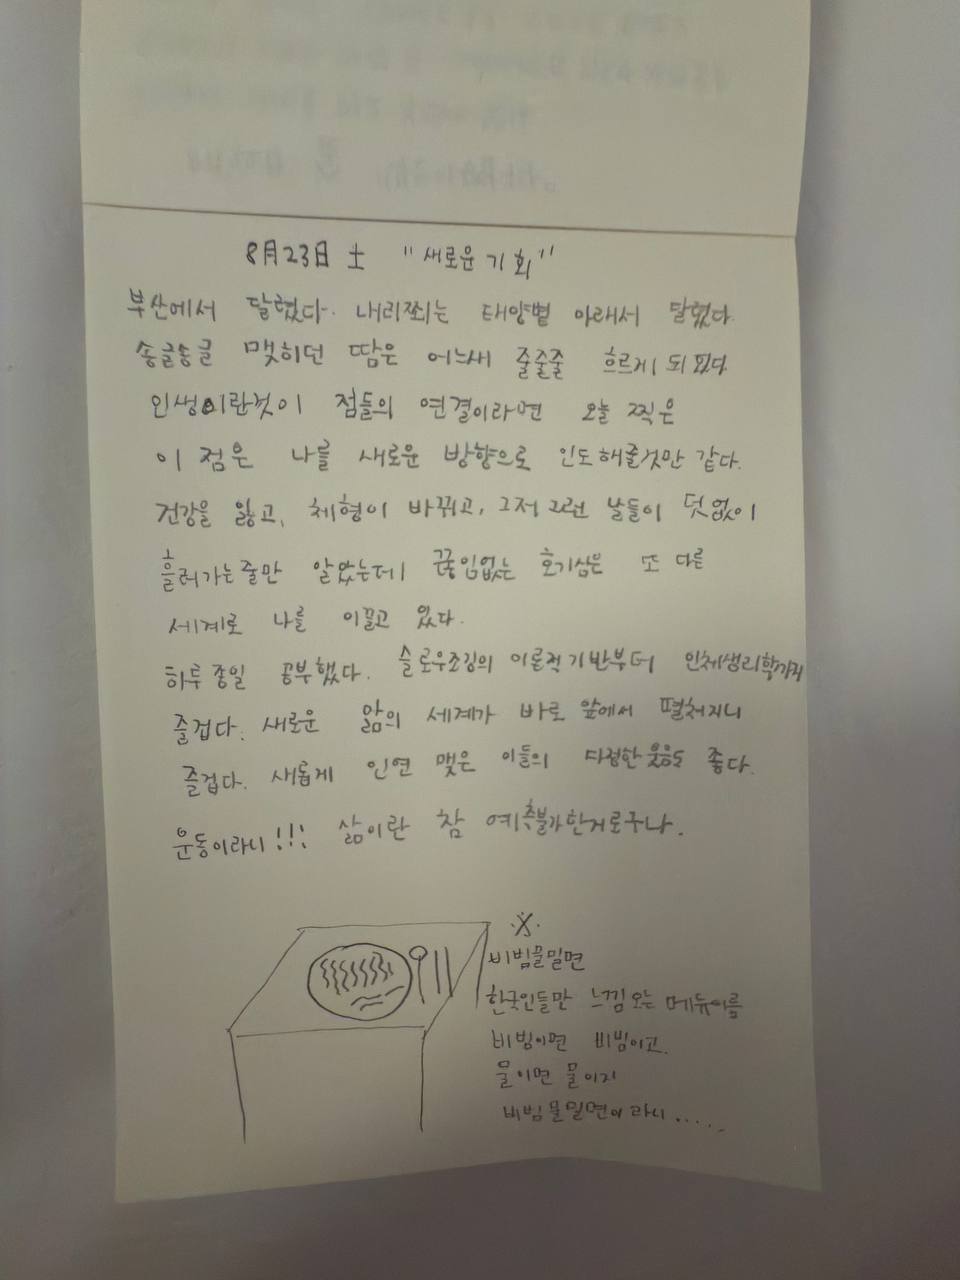 8月23日 土 "새로운 기회"
부산에서 달렸다. 내리쬐는 태양볕 아래서 달렸다.
송글송글 맺히던 땀은 어느새 줄줄줄 흐르게 되었다
인생이란것이 점들의 연결이라면 오늘 찍은
이 점은 나를 새로운 방향으로 인도해줄것만 같다.
건강을 잃고, 체형이 바뀌고, 그저 그런 날들이 덧없이
흘러가는줄만 알았는데 끊임없는 호기심은 또 다른
세계로 나를 이끌고 있다.
하루종일 공부했다. 슬로우조깅의 이론적기반부터 인체생리학까지
즐겁다. 새로운 앎의 세계가 바로 앞에서 펼쳐지니
즐겁다. 새롭게 인연 맺은 이들의 다정한 웃음도 좋다.
운동이라니!!! 삶이란 참 예측불가한거로구나.
※
비빔물밀면
한국인들만 느낌오는 메뉴이름
비빔이면 비빔이고.
물이면 물이지
비빔물밀면이라니.....